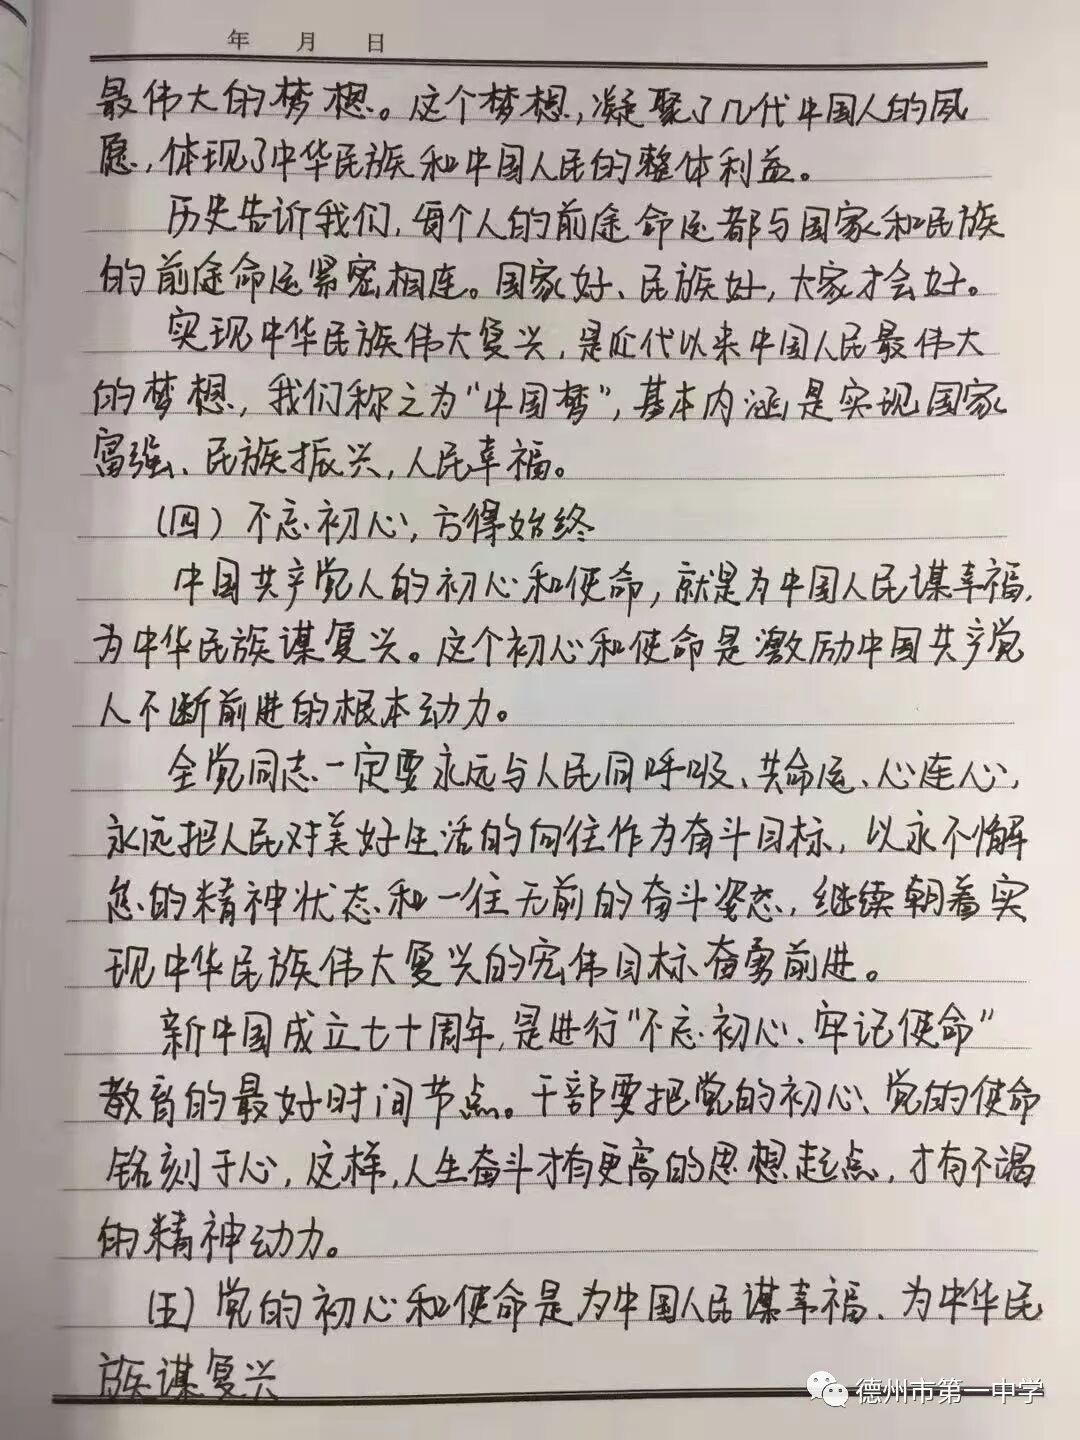 年 月 日
最伟大的梦想。这个梦想，凝聚了几代中国人的夙
愿，体现了中华民族和中国人民的整体利益。
历史告诉我们，每个人的前途命运都与国家和民族
的前途命运紧密相连。国家好、民族好，大家才会好。
实现中华民族伟大复兴，是近代以来中国人民最伟大
的梦想，我们称之为“中国梦”，基本内涵是实现国家
富强、民族振兴，人民幸福。
（四）不忘初心，方得始终
中国共产党人的初心和使命，就是为中国人民谋幸福，
为中华民族谋复兴。这个初心和使命是激励中国共产党
人不断前进的根本动力。
全党同志一定要永远与人民同呼吸、共命运、心连心，
永远把人民对美好生活的向往作为奋斗目标，以永不懈
怠的精神状态和一往无前的奋斗姿态，继续朝着实
现中华民族伟大复兴的宏伟目标奋勇前进。
新中国成立七十周年，是进行“不忘初心、牢记使命”
教育的最好时间节点。干部要把党的初心、党的使命
铭刻于心，这样，人生奋斗才有更高的思想起点，才有不竭
的精神动力。
（五）党的初心和使命是为中国人民谋幸福、为中华民
族谋复兴
德州市第一中学